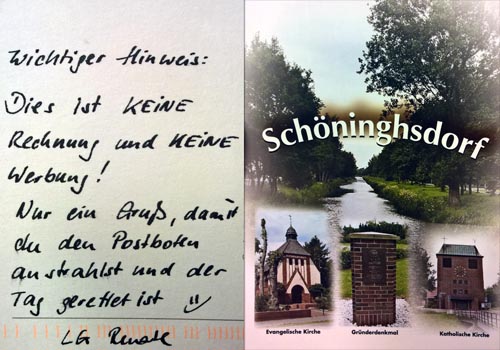 Wichtiger Hinweis:
Dies ist KEINE
Rechnung und KEINE
Werbung!
Nur ein Gruß, damit
du den Postboten
anstrahlst und der
Tag gerettet ist
LG Renate
Schöninghsdorf
Evangelische Kirche
Gründerdenkmal
Katholische Kirche